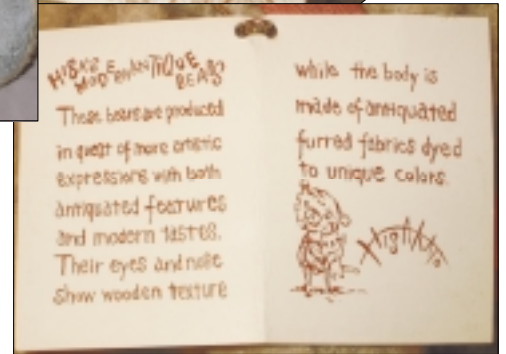 MODERN ANTIQUE
BEARS
These bears are produced
in quest of more artistic
expressions with both
antiquated features
and modern tastes.
Their eyes and nose
show wooden texture
while the body is
made of antiquated
furred fabrics dyed
to unique colors.